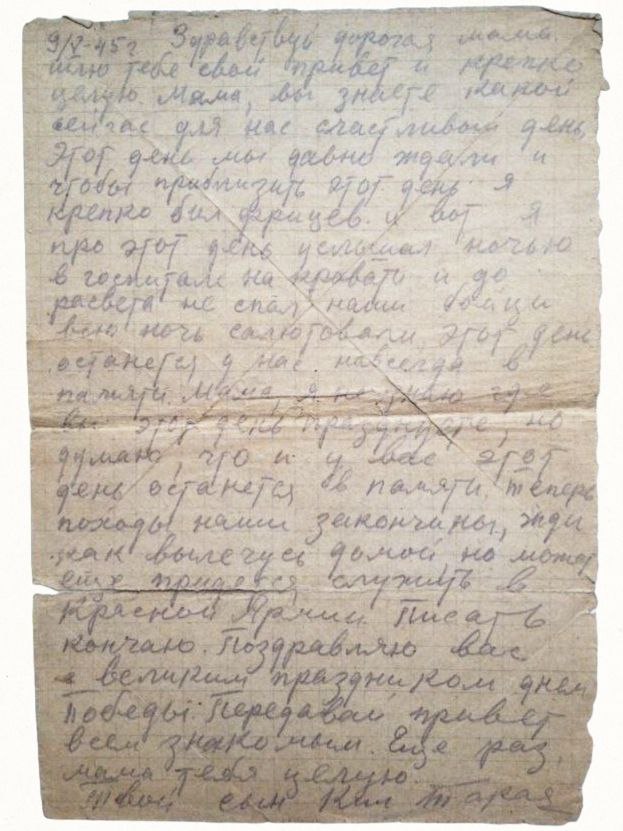 9/V-45г Здравствуй дорогая мама.
шлю тебе свой привет и крепко
целую. Мама, вы знаете какой
сейчас для нас счастливый день,
этот день мы давно ждали и
чтобы приблизить этот день я
крепко бил фрицев. и вот я
про этот день услышал ночью
в госпитале на кровати и до
расвета не спал, наши бойци
всю ночь салютовали, этот день
останется у нас навсегда в
памяти. Мама, я не знаю где
вы этот день празднуете, но
думаю, что и у вас этот
день останется в памяти. Теперь
походы наши закончины, жди
как вылечусь домой но может
еще придется служить в
Красной Армии. Писать
кончаю. Поздравляю вас
с великим праздником днем
Победы. Передавай привет
всем знакомым. Еще раз,
мама тебя целую.
Твой сын Ким Тарая